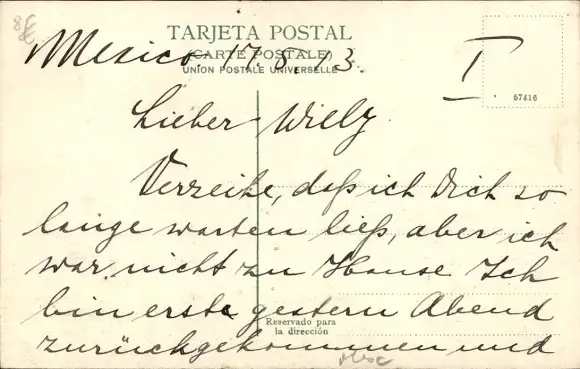 TARJETA POSTAL
(CARTE POSTALE)
UNION POSTALE UNIVERSELLE
Mexico 17.8.13.
I
57416
Lieber Willy
Verzeihe, daß ich Dich so
lange warten ließ, aber ich
war nicht zu Hause Ich
bin erst gestern Abend
Reservado para
la dirección
zurückgekommen und